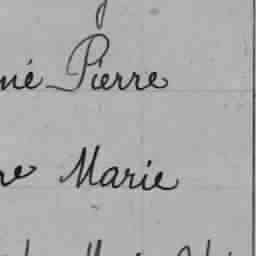 né Pierre
re Marie